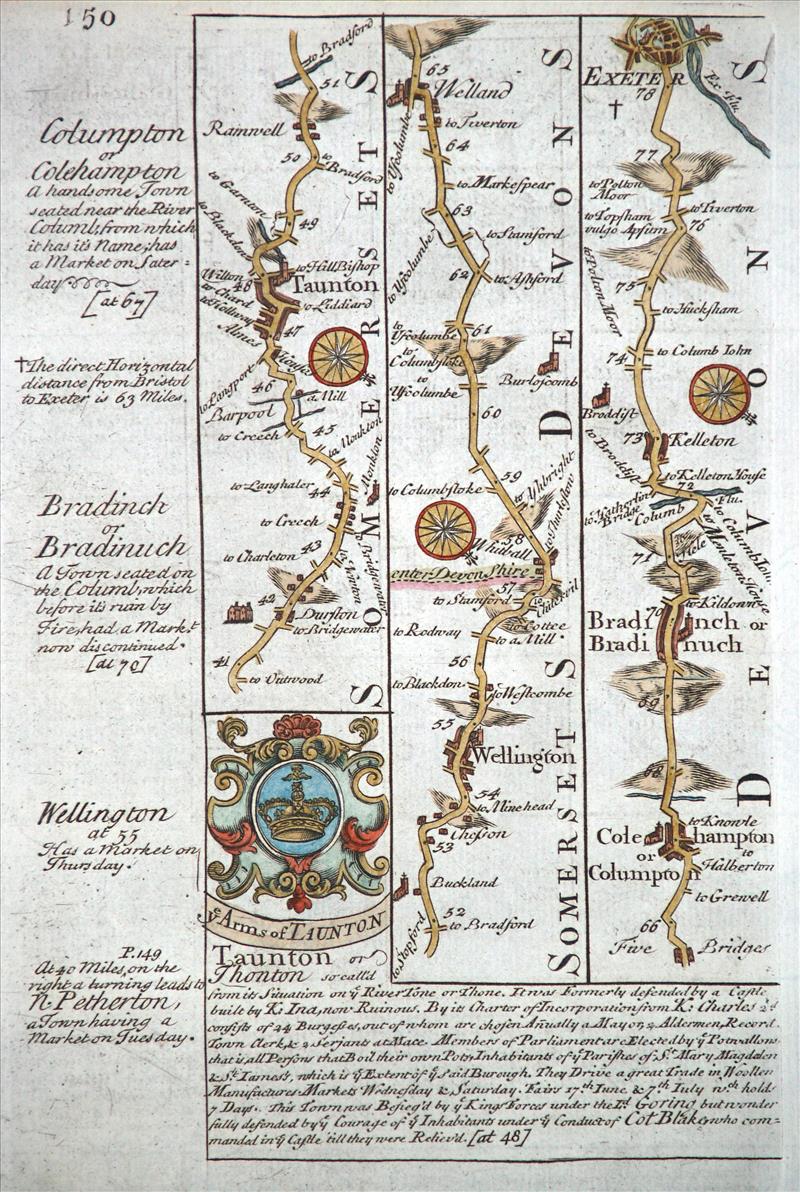 150
Columpton
or
Colehampton
A handsome Town
seated near the River
Columb, from which
it has it's Name; has
a Market on Sater=
day
[at 67]
†The direct Horizontal
distance from Bristol
to Exeter is 63 Miles.
Bradinch
or
Bradinuch
A Town seated on
the Columb, which
before it's ruin by
Fire, had a Mark.t
now discontinued.
[at 70]
Wellington
at 55
Has a Market on
Thursday.
P.149
At 40 Miles, on the
right a turning leads to
N. Petherton,
a Town having a
Market on Tuesday.
to Bradford
51
Rainwell
50
to Bradford
to Grarnton
49
to Blackdon
Wilton
to Hill Bishop
48
Taunton
to Chard
to Liddiard
to Hollway
47
Almes
Houses
to Langport
46
a Mill
Barpool
45
to Creech
to Monkton
Monkton
to Langhaler
44
to Creech
43
to Charleton
to Bridgewater
42
Durston
to Bridgewater
41
to Outwood
SOMERSETS
ye Arms of TAUNTON
65
Welland
to Tiverton
to Ufcolumbe
64
to Markespear
63
to Stamford
to Ufcolumbe
62
to Ashford
61
to Ufcolumbe
to Columbstoke
Burlescomb
to Ufcolumbe
60
59
to Columbstoke
to Uhbright
58
Whitball
to Churlston
enter Devon Shire
57
to Stamford
to Cottee
to Rodway
to a Mill
56
to Blackdon
to Westcombe
55
Wellington
54
to Minehead
Chesson
53
Buckland
52
to Bradford
to Stopford
SOMERSETS
DEVONS
EXETER
Ex Flu.
78
†
77
to Polton
Moor
to Tiverton
to Topsham
vulgo Apsum
76
to Polton Moor
75
to Hucksham
74
to Columb Iohn
Broddist
73
Kelleton
to Broddist
to Kelleton House
72
Flu.
Columb
Bridge
to Columb Iohn
to Monkton House
71
Hele
to Kildown
70
Bradi nch or
Bradi nuch
69
68
to Knowle
Cole hampton
or
Columpton
to
Halberton
67
to Grewell
66
Five Bridges
DEVONS
Taunton or
Thonton so call'd
from its Situation on ye River Tone or Thone. It was Formerly defended by a Castle
built by K: Ina, now Ruinous. By its Charter of Incorporation from K: Charles 2d
consists of 24 Burgesses, out of whom are chosen Anually a Mayor, 2 Aldermen, Record.
Town Clerk, & 2 Serjants at Mace. Members of Parliament are Elected by ye Potwallons
that is, all Persons that Boil their own Pots, Inhabitants of ye Parishes of St. Mary Magdalen
& St. Iames's, which is ye Extent of ye said Burough. They Drive a great Trade in Woollen
Manufactures. Markets Wednesday & Saturday. Fairs 17th Iune & 7th Iuly wch. holds
7 Days. This Town was Besieg'd by ye Kings Forces under the Ld. Goring but wonder
fully defended by ye Courage of ye Inhabitants under ye Conduct of Col Blake who com=
manded in ye Castle till they were Reliev'd. [at 48]